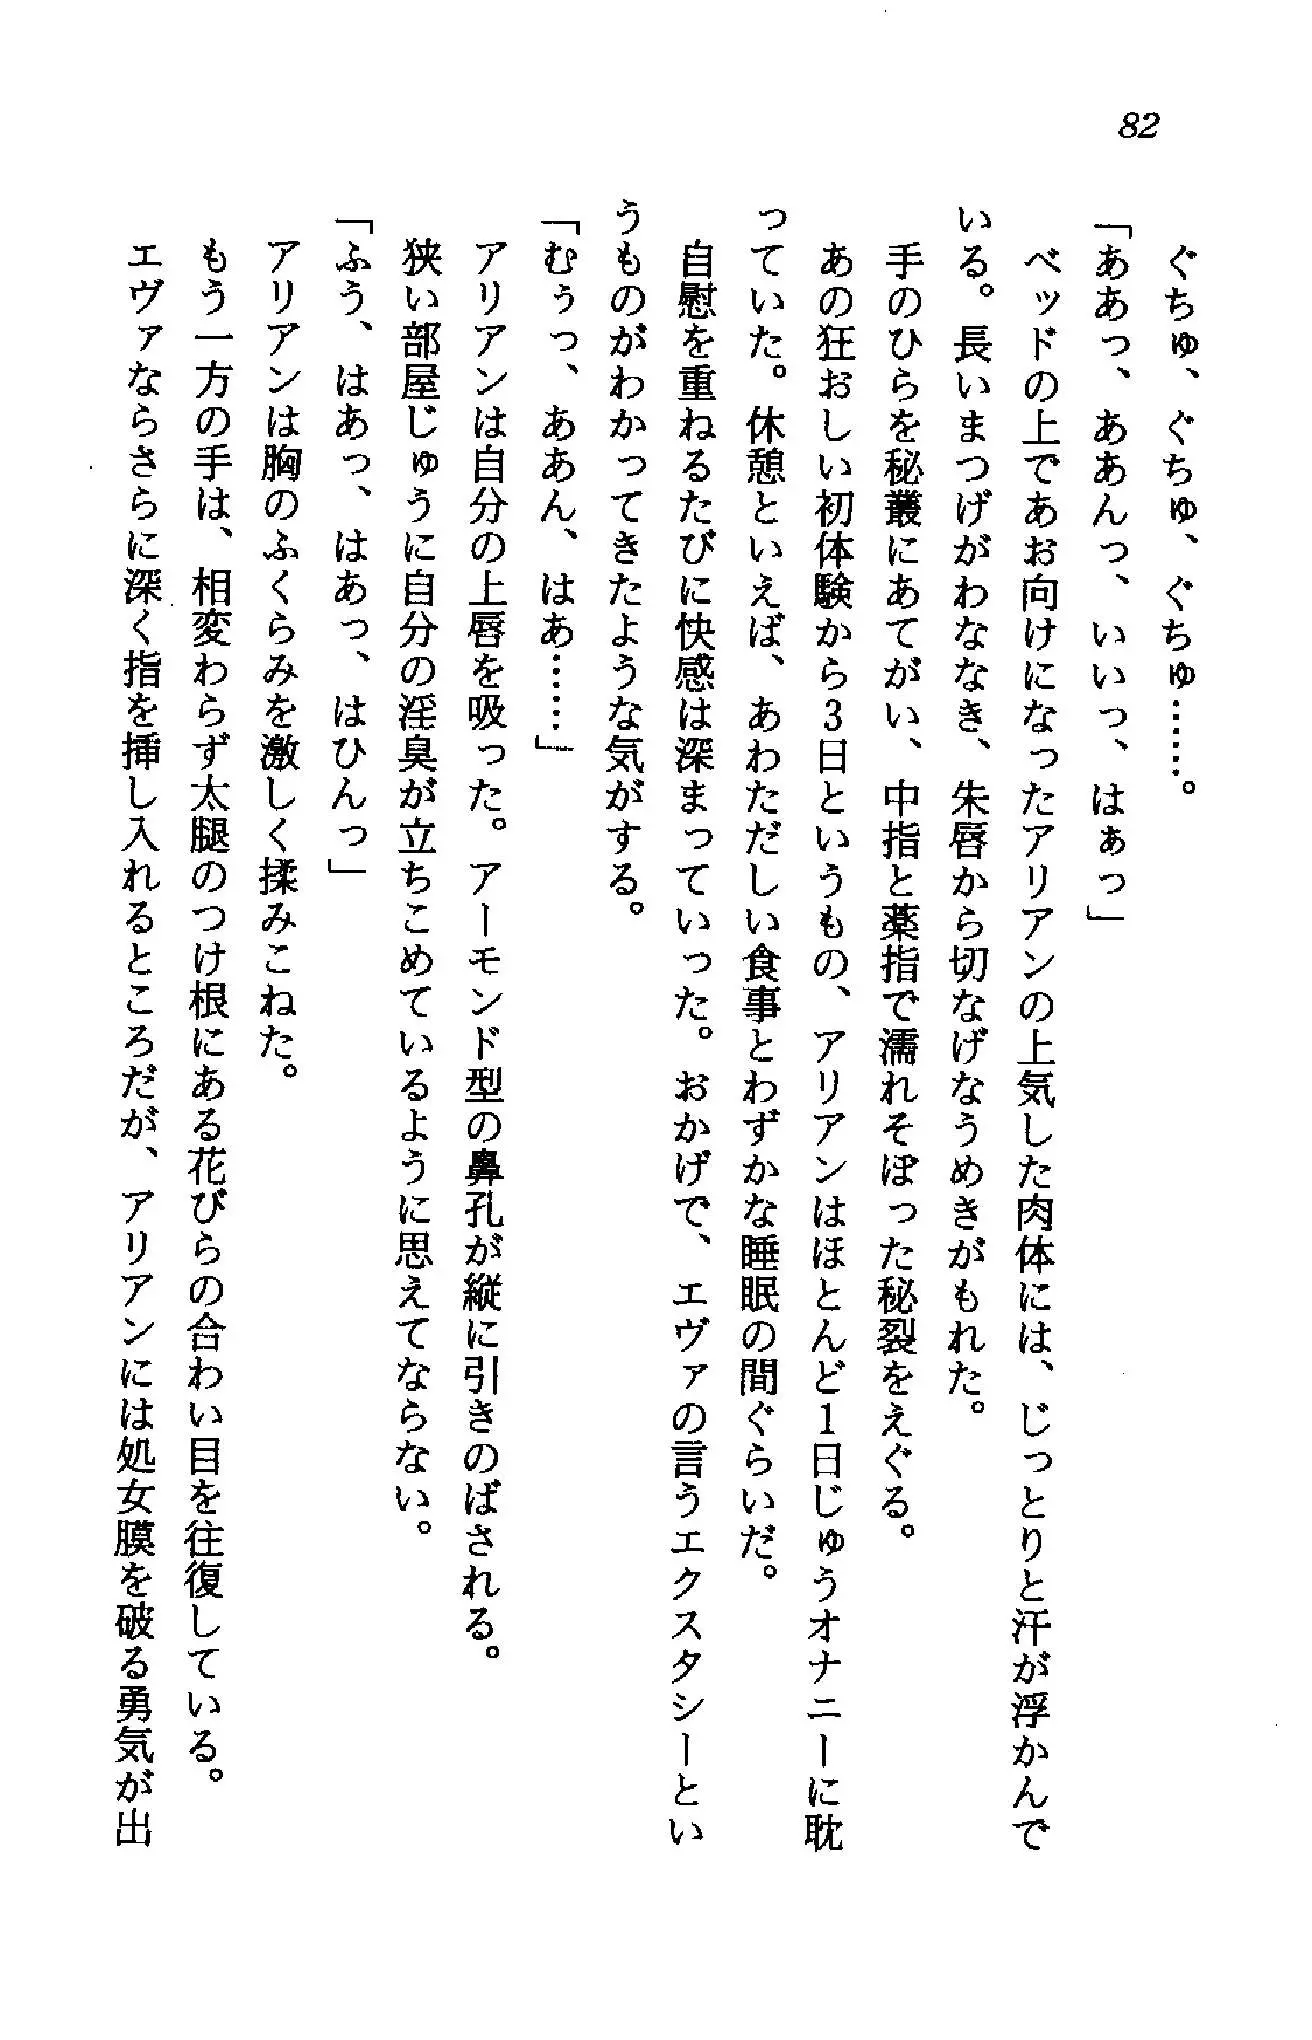 82
ぐちゅ、ぐちゅ、ぐちゅ……。
「ああっ、ああんっ、いいっ、はぁっ」
ベッドの上であお向けになったアリアンの上気した肉体には、じっとりと汗が浮かんで
いる。長いまつげがわななき、朱唇から切なげなうめきがもれた。
手のひらを秘叢にあてがい、中指と薬指で濡れそぼった秘裂をえぐる。
あの狂おしい初体験から3日というもの、アリアンはほとんど1日じゅうオナニーに耽
っていた。休憩といえば、あわただしい食事とわずかな睡眠の間ぐらいだ。
自慰を重ねるたびに快感は深まっていった。おかげで、エヴァの言うエクスタシーとい
うものがわかってきたような気がする。
「むぅっ、ああん、はあ……」
アリアンは自分の上唇を吸った。アーモンド型の鼻孔が縦に引きのばされる。
狭い部屋じゅうに自分の淫臭が立ちこめているように思えてならない。
「ふう、はあっ、はあっ、はひんっ」
アリアンは胸のふくらみを激しく揉みこねた。
もう一方の手は、相変わらず太腿のつけ根にある花びらの合わい目を往復している。
エヴァならさらに深く指を挿し入れるところだが、アリアンには処女膜を破る勇気が出